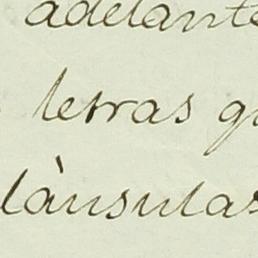 adelante
letras qu
làusulas